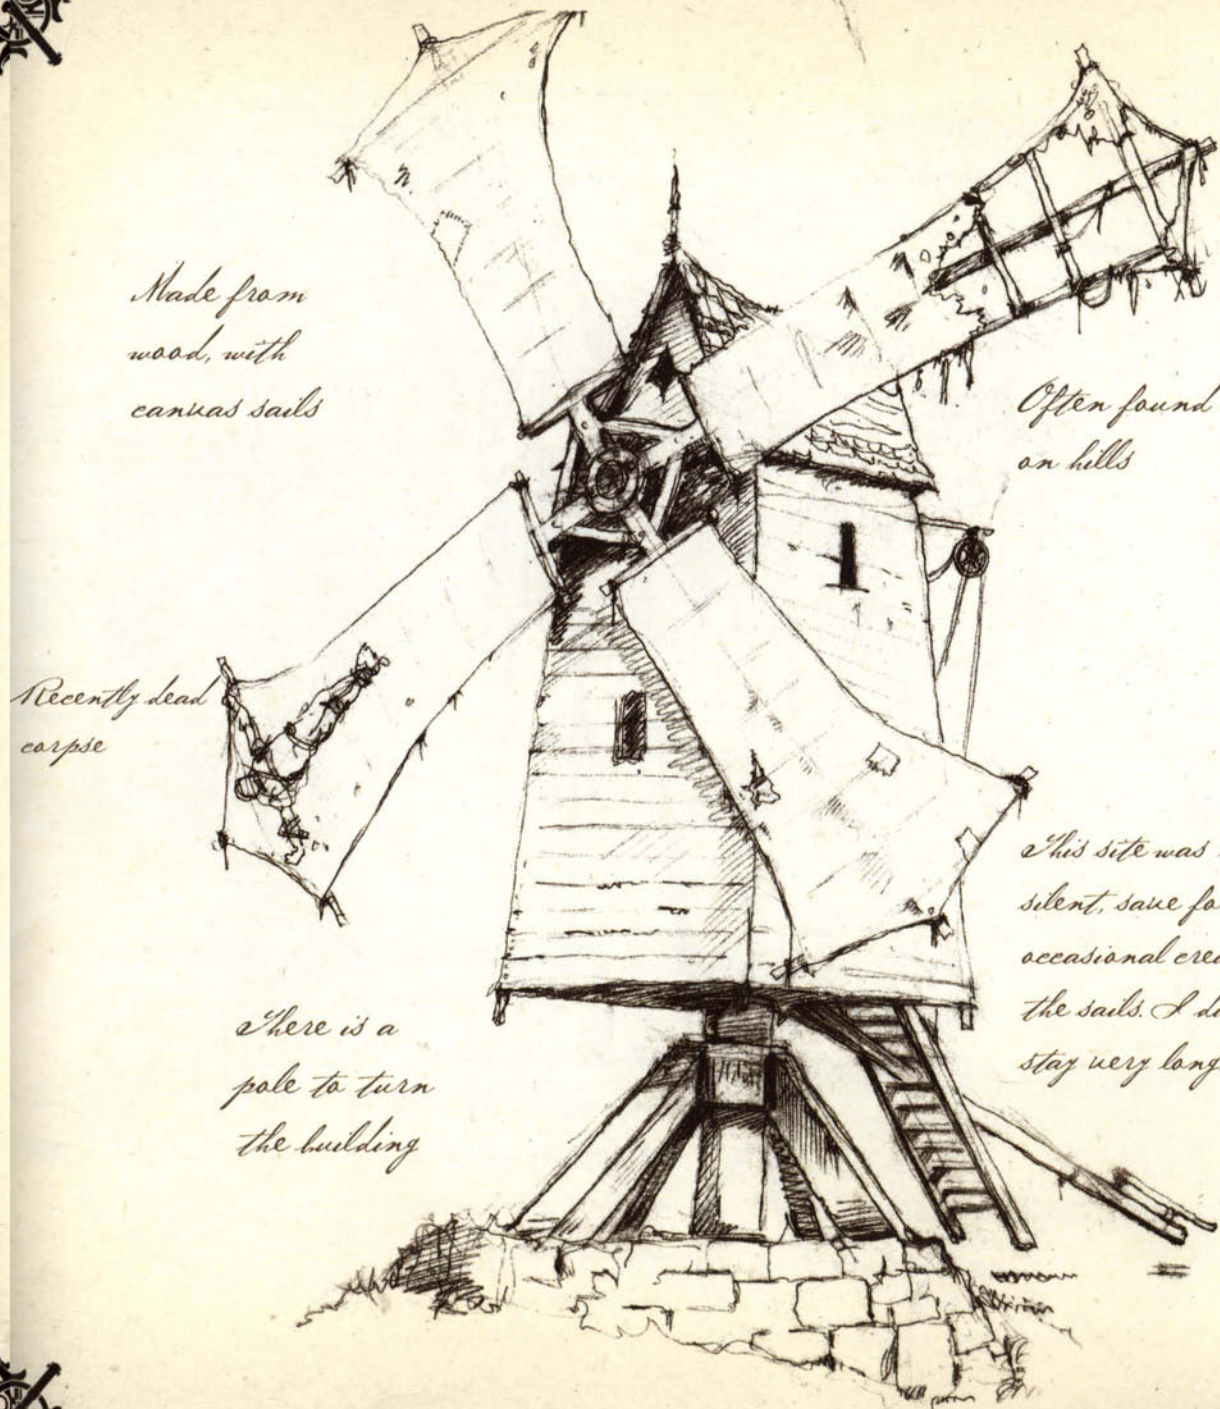 Made from
wood, with
canvas sails
Often found
on hills
Recently dead
corpse
This site was
silent, save fo
occasional crea
the sails. I di
stay very long
There is a
pole to turn
the building